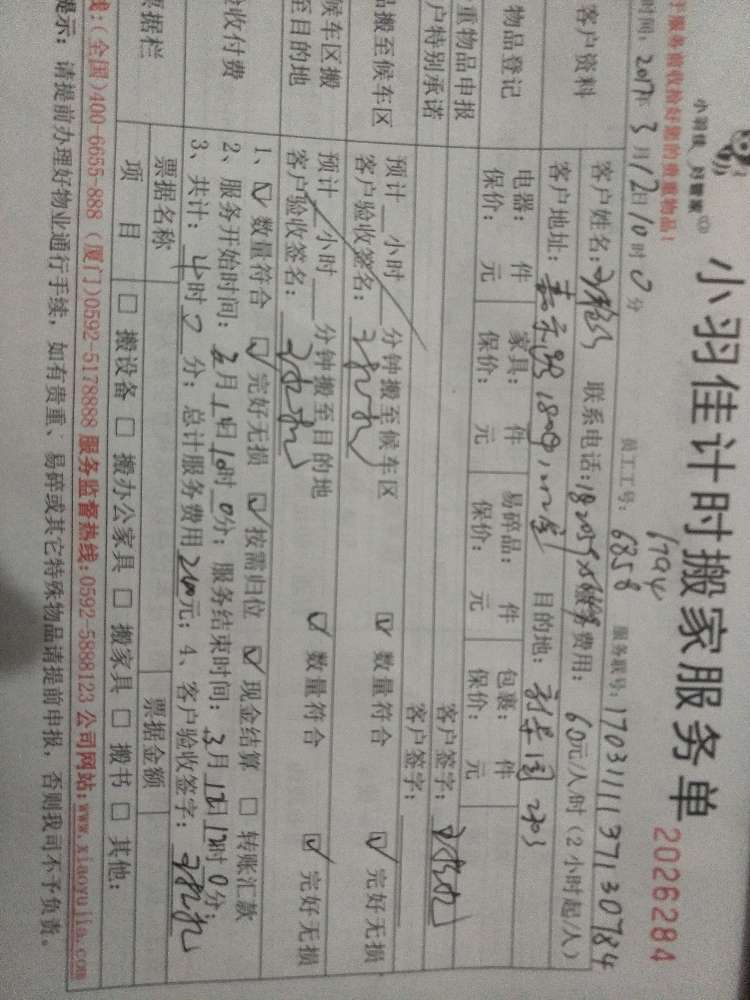 小羽佳计时搬家服务单
2026284
小羽佳 好管家
服务前收捡好您的贵重物品！
时间：2017年3月12日10时0分 员工工号：6858 1794 服务联号：1703111137130784
客户资料
客户姓名： 联系电话： 费用：60元/人/时（2小时起/人）
客户地址： 目的地：
物品登记
电器： 件 家具： 件 易碎品： 件 包裹： 件
保价： 元 保价： 元 保价： 元 保价： 元
重物品申报 客户签字：
户特别承诺 客户签字：
品搬至候车区
预计 小时 分钟搬至候车区 ☑ 数量符合 ☑ 完好无损
客户验收签名：
候车区搬
至目的地
预计 小时 分钟搬至目的地 ☑ 数量符合 ☑ 完好无损
客户验收签名：
验收付费
1、☑ 数量符合 ☑ 完好无损 ☑ 按需归位 ☑ 现金结算 □ 转账汇款
2、服务开始时间：3月12日10时0分；服务结束时间：3月12日12时0分；
3、共计：4时0分；总计服务费用240元；4、客户验收签字：
票据栏
票据名称 票据金额
项目 □ 搬设备 □ 搬办公家具 □ 搬家具 □ 搬书 □ 其他：
线：(全国)400-6655-888 (厦门)0592-5178888 服务监督热线：0592-5888123 公司网站：www.xiaoyujia.com
提示：请提前办理好物业通行手续，如有贵重、易碎或其它特殊物品请提前申报，否则我司不予负责。